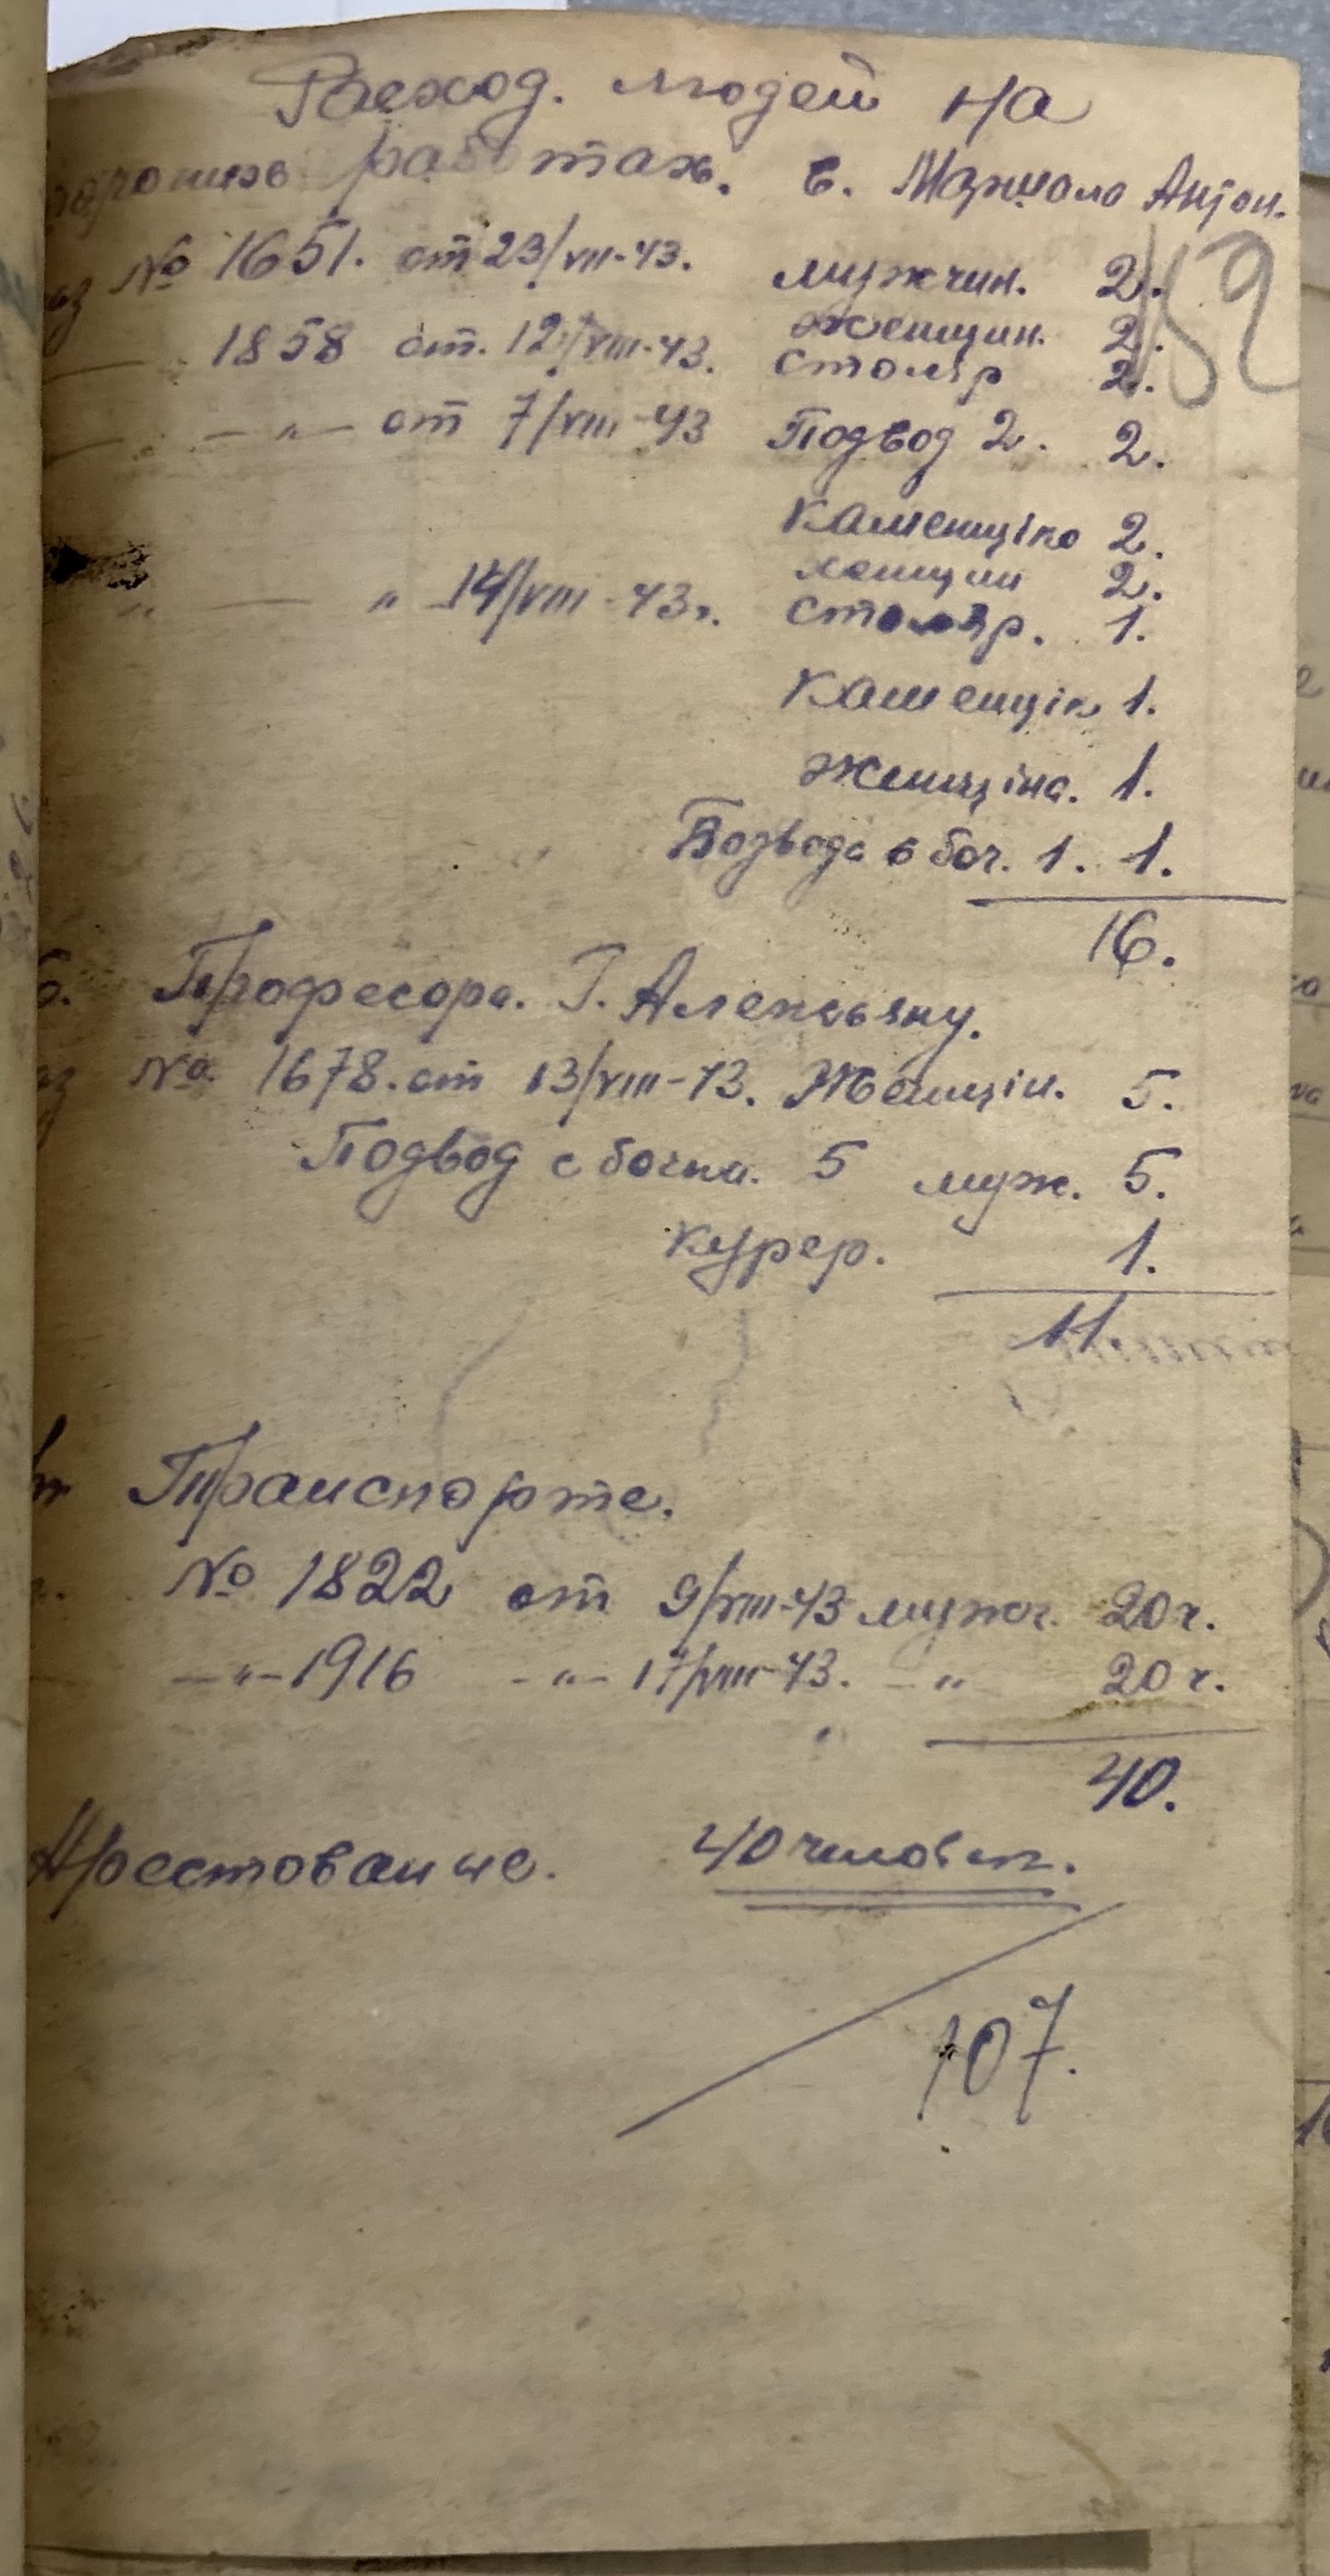 Расход. людей на
работах. С. Маршала Антон.
152
№ 1651. от 23/VII-43. мужчин. 2.
женщин. 2.
1858 от. 12/VIII-43. столяр 2.
—"— от 7/VIII-43 Подвод 2. 2.
Каменщіко 2.
женщин 2.
" — " 14/VIII-43г. столяр. 1.
Каменщік 1.
женщіна. 1.
Подвода с боч. 1. 1.
16.
Професора. Г. Алексьяну.
№ 1678. от 13/VIII-43. Женщін. 5.
Подвод с бочка. 5 муж. 5.
Курер. 1.
11.
Транспорте.
№ 1822 от 9/VIII-43 мужч. 20 ч.
—"— 1916 —"— 17/VIII-43. —" 20 ч.
40.
Арестование. 40 человек.
107.